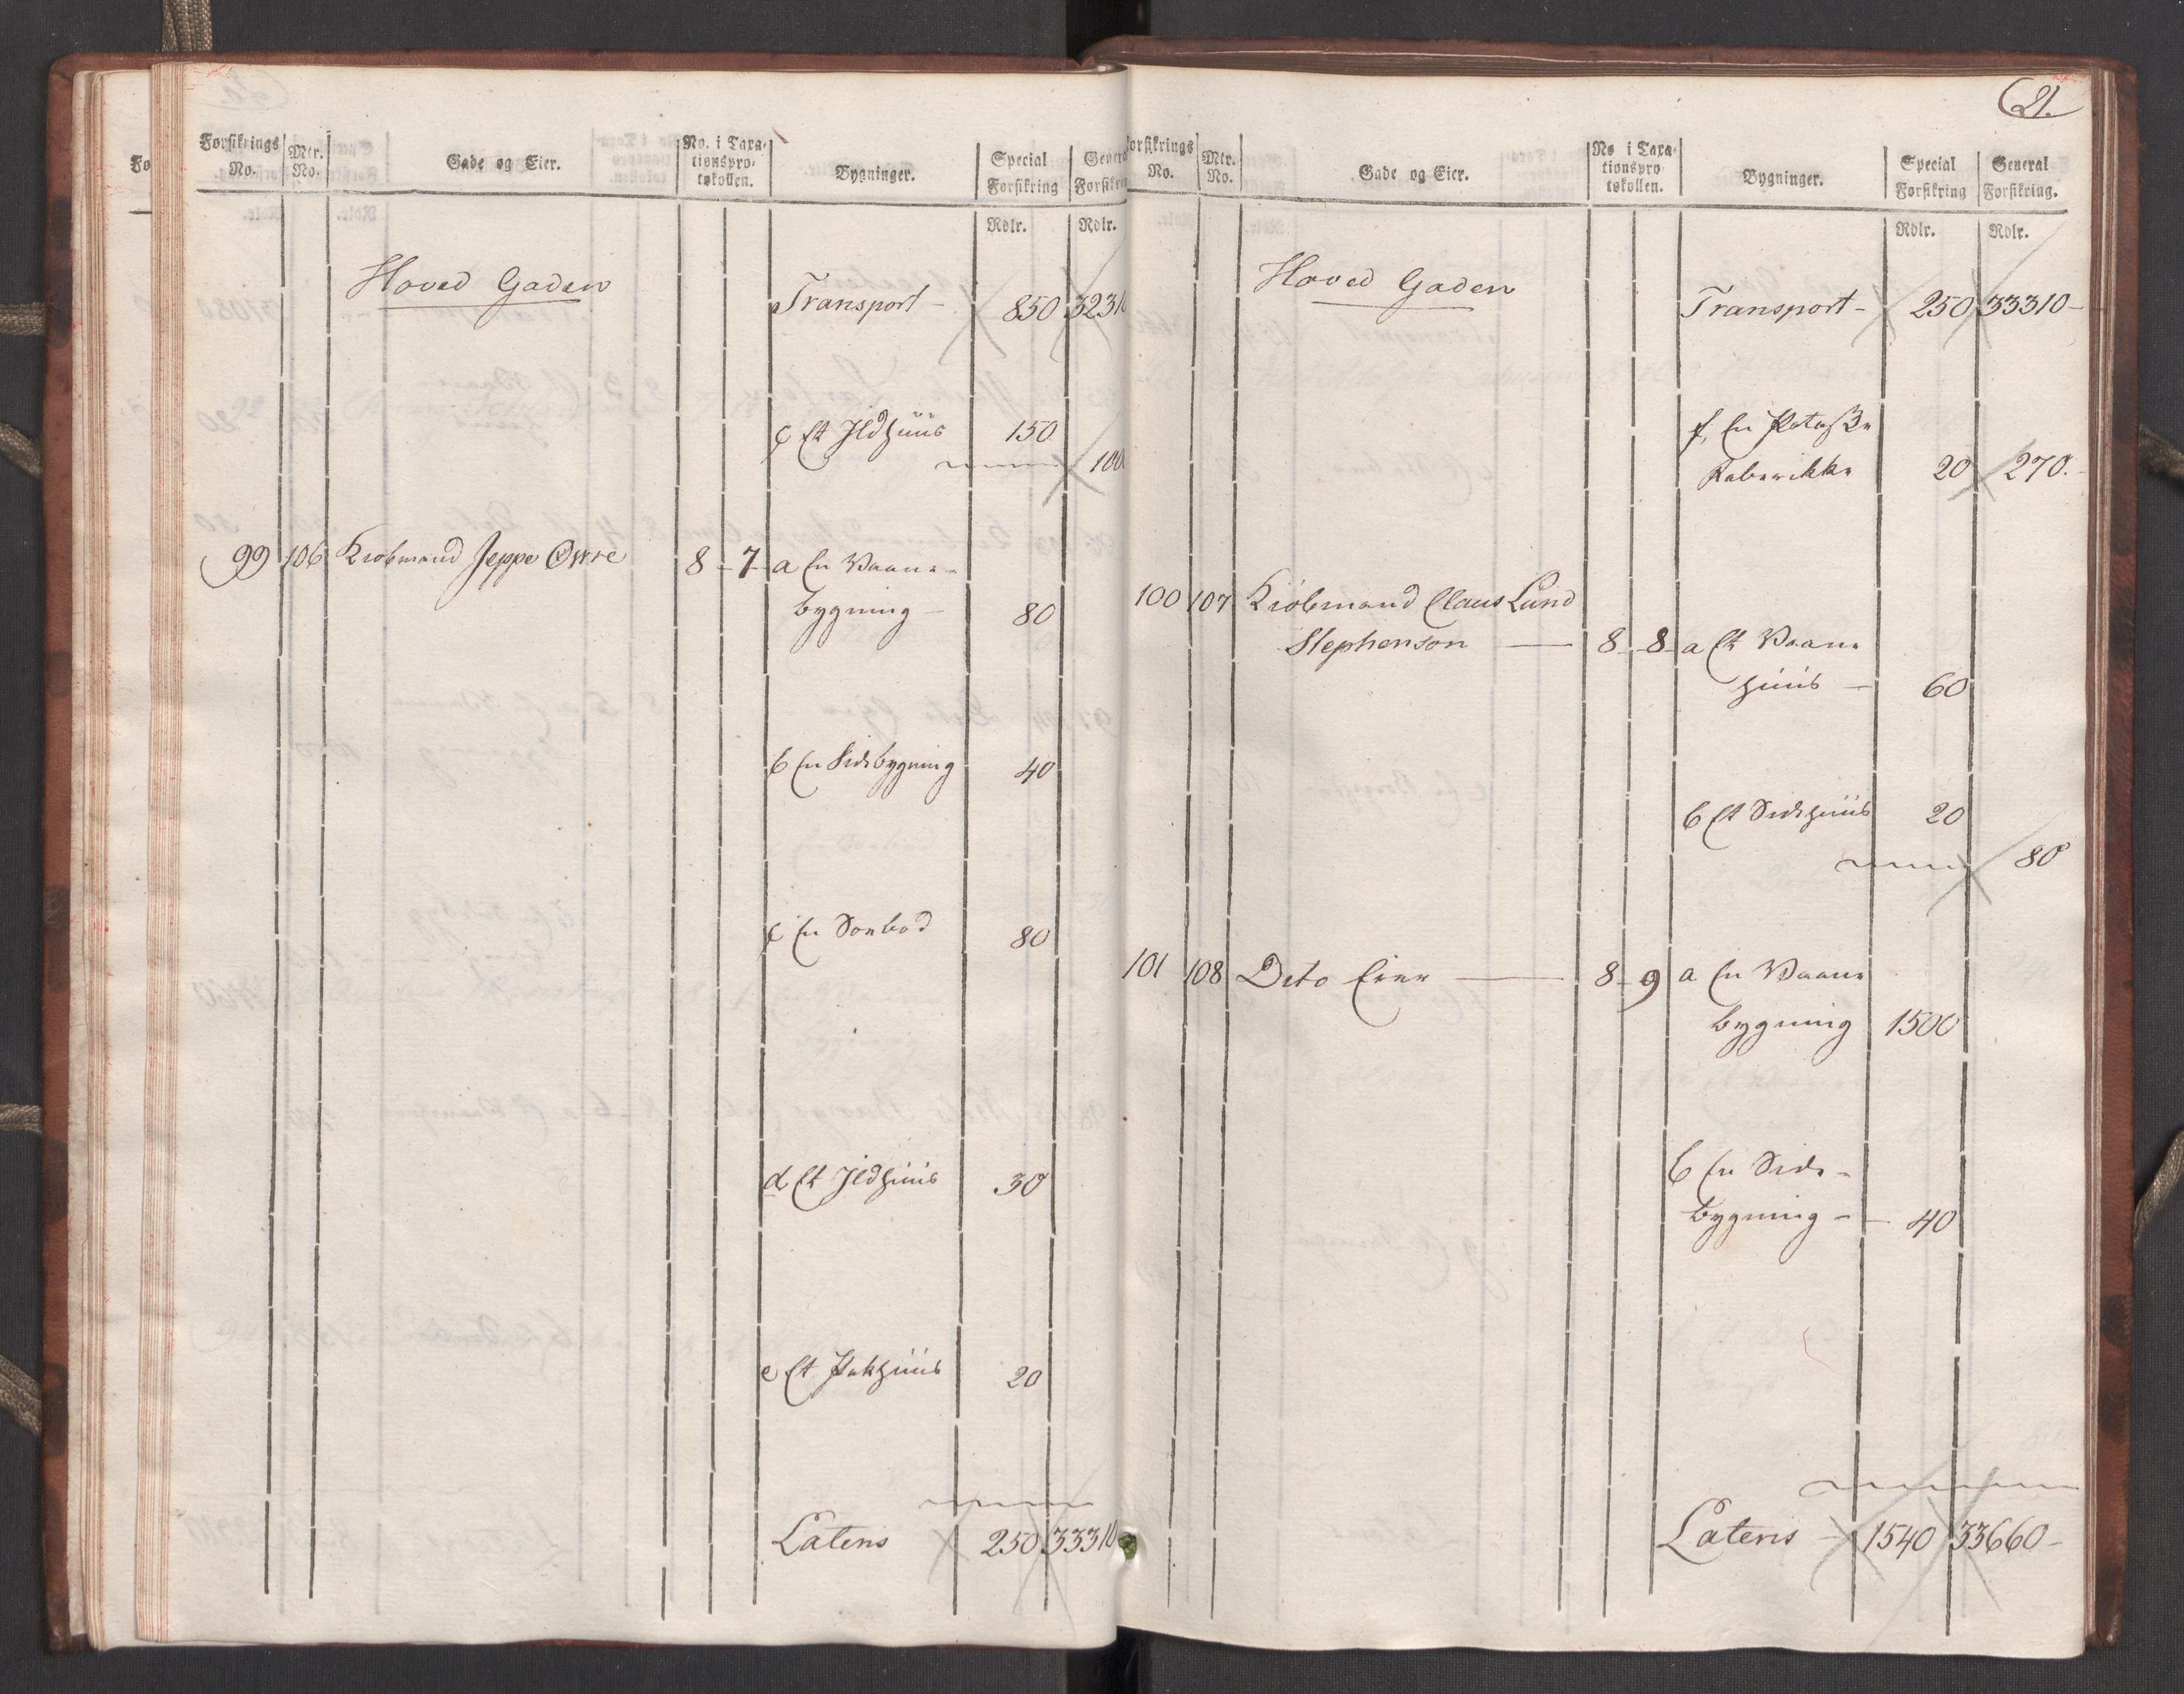 Forsikrings No. Mtr. No. Gade og Eier. No. i Taxationsprotokollen. Bygninger. Special Forsikring General
Rdlr. Rdlr.
Hoved Gaden Transport - 850
c Et Ildhuus 150
99 106 Kiøbmand Jeppe Owre 8 - 7 - a En Vaane-
bygning - 80
b En Sidebygning 40
c En Søebod 80
d Et Ildhuus 30
e Et Pakhuus 20
Lateris 250 33310
21.
Forsikrings No. Mtr. No. Gade og Eier. No i Taxationsprotokollen. Bygninger. Special Forsikring General Forsikring.
Rdlr. Rdlr.
Hoved Gaden Transport - 250 33310 -
f, En Potaske
Fabrikke 20 270.
100 107 Kiøbmand Claus Lund
Stephenson — 8 - 8 - a Et Vaane
huus - 60
b Et Sidehuus 20
80
101 108 Dito Eier — 8 - 9 a En Vaane
bygning 1500
b En Side-
bygning - 40
Lateris - 1540 33660 -